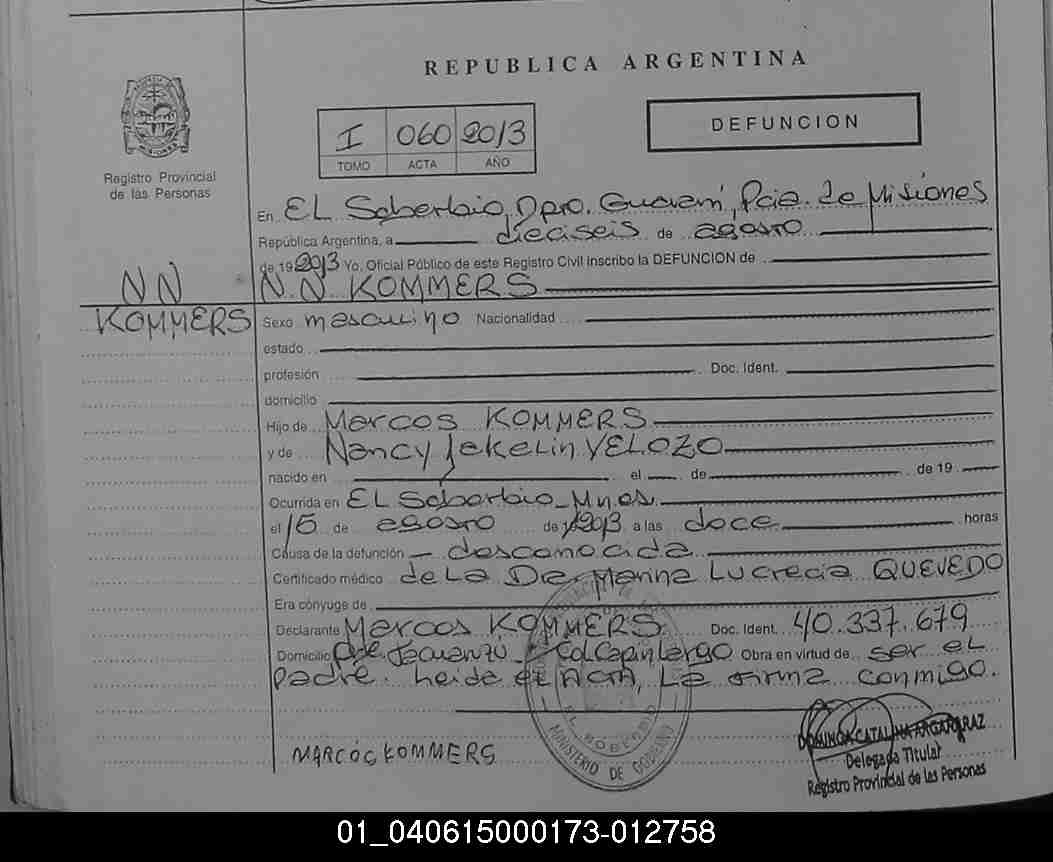 REPUBLICA ARGENTINA
I 060 2013
TOMO ACTA AÑO
DEFUNCION
Registro Provincial
de las Personas
En EL Soberbio, Dpto. Guaraní, Pcia. de Misiones
República Argentina, a dieciseis de agosto
de 19 2013 Yo, Oficial Público de este Registro Civil inscribo la DEFUNCION de
NN
KOMMERS
N.N KOMMERS
Sexo masculino Nacionalidad
estado
profesión Doc. Ident.
domicilio
Hijo de Marcos KOMMERS
y de Nancy Jekelin VELOZO
nacido en el de de 19
Ocurrida en EL Soberbio Mnes.
el 15 de agosto de 2013 a las doce horas
Causa de la defunción desconocida
Certificado médico de La Dra. Marina Lucrecia QUEVEDO
Era cónyuge de
Declarante Marcos KOMMERS Doc. Ident. 40.337.679
Domicilio Obra en virtud de ser el
Padre. Leida el Acta, La firma conmigo.
EL SOBERBIO
MINISTERIO DE GOBIERNO
MARCOS KOMMERS
DOMINGA CATALINA
Delegada Titular
Registro Provincial de las Personas
01_040615000173-012758